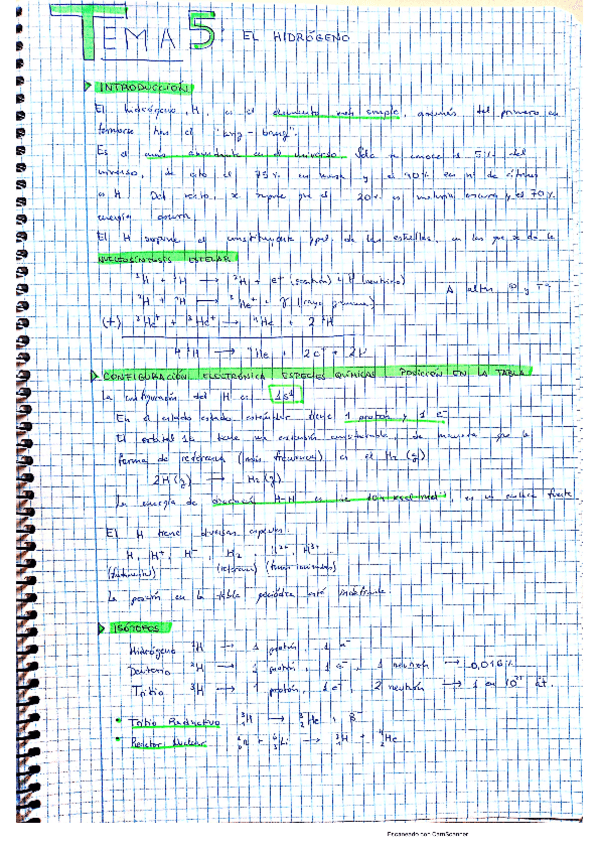 TEMA 5 EL HIDRÓGENO
INTRODUCCIÓN
El hidrógeno, H, es el elemento más simple, además del primero en
formarse tras el "bing-bang".
Es el más abundante en el universo. Sólo se conoce el 5% del
universo, de ello el 75% en masa y el 90% en nº de átomos
es H. Del resto, se supone que el 20% es materia oscura y el 70%
energía oscura.
El H supone el constituyente ppal. de las estrellas, en las que se da la
NUCLEOSÍNTESIS ESTELAR
¹H + ¹H → ²H + e⁺ (positrón) + ν (neutrino)
²H + ¹H → ³He⁺ + γ (rayos gamma)
A altas P y T
(+) ³He⁺ + ³He⁺ → ⁴He + 2 ¹H
4 ¹H → ⁴He + 2e⁺ + 2ν
CONFIGURACIÓN ELECTRÓNICA ESPECIES QUÍMICAS POSICIÓN EN LA TABLA
La configuración del H es 1s¹
En el estado estado estándar tiene 1 protón y 1 e⁻
El orbital 1s tiene una extensión considerable, de manera que la
forma de referencia (más frecuente) es el H₂ (g)
2H(g) → H₂(g)
La energía de H-H es de 104 kcal mol⁻¹, es un enlace fuerte
El H tiene diversas especies:
H, H⁺, H⁻, H₂
(referencia)
La posición en la tabla periódica está
ISÓTOPOS
Hidrógeno ¹H → 1 protón, 1 e⁻
Deuterio ²H → 1 protón, 1 e⁻, 1 neutrón → 0,016%
Tritio ³H → 1 protón, 1 e⁻, 2 neutrón → 1 en át.
Tritio Radiactivo ³₁H → ³₂He + β⁻
Reactor Nuclear ¹₀n + ⁶₃Li → ³₁H + ⁴₂He
Escaneado con CamScanner